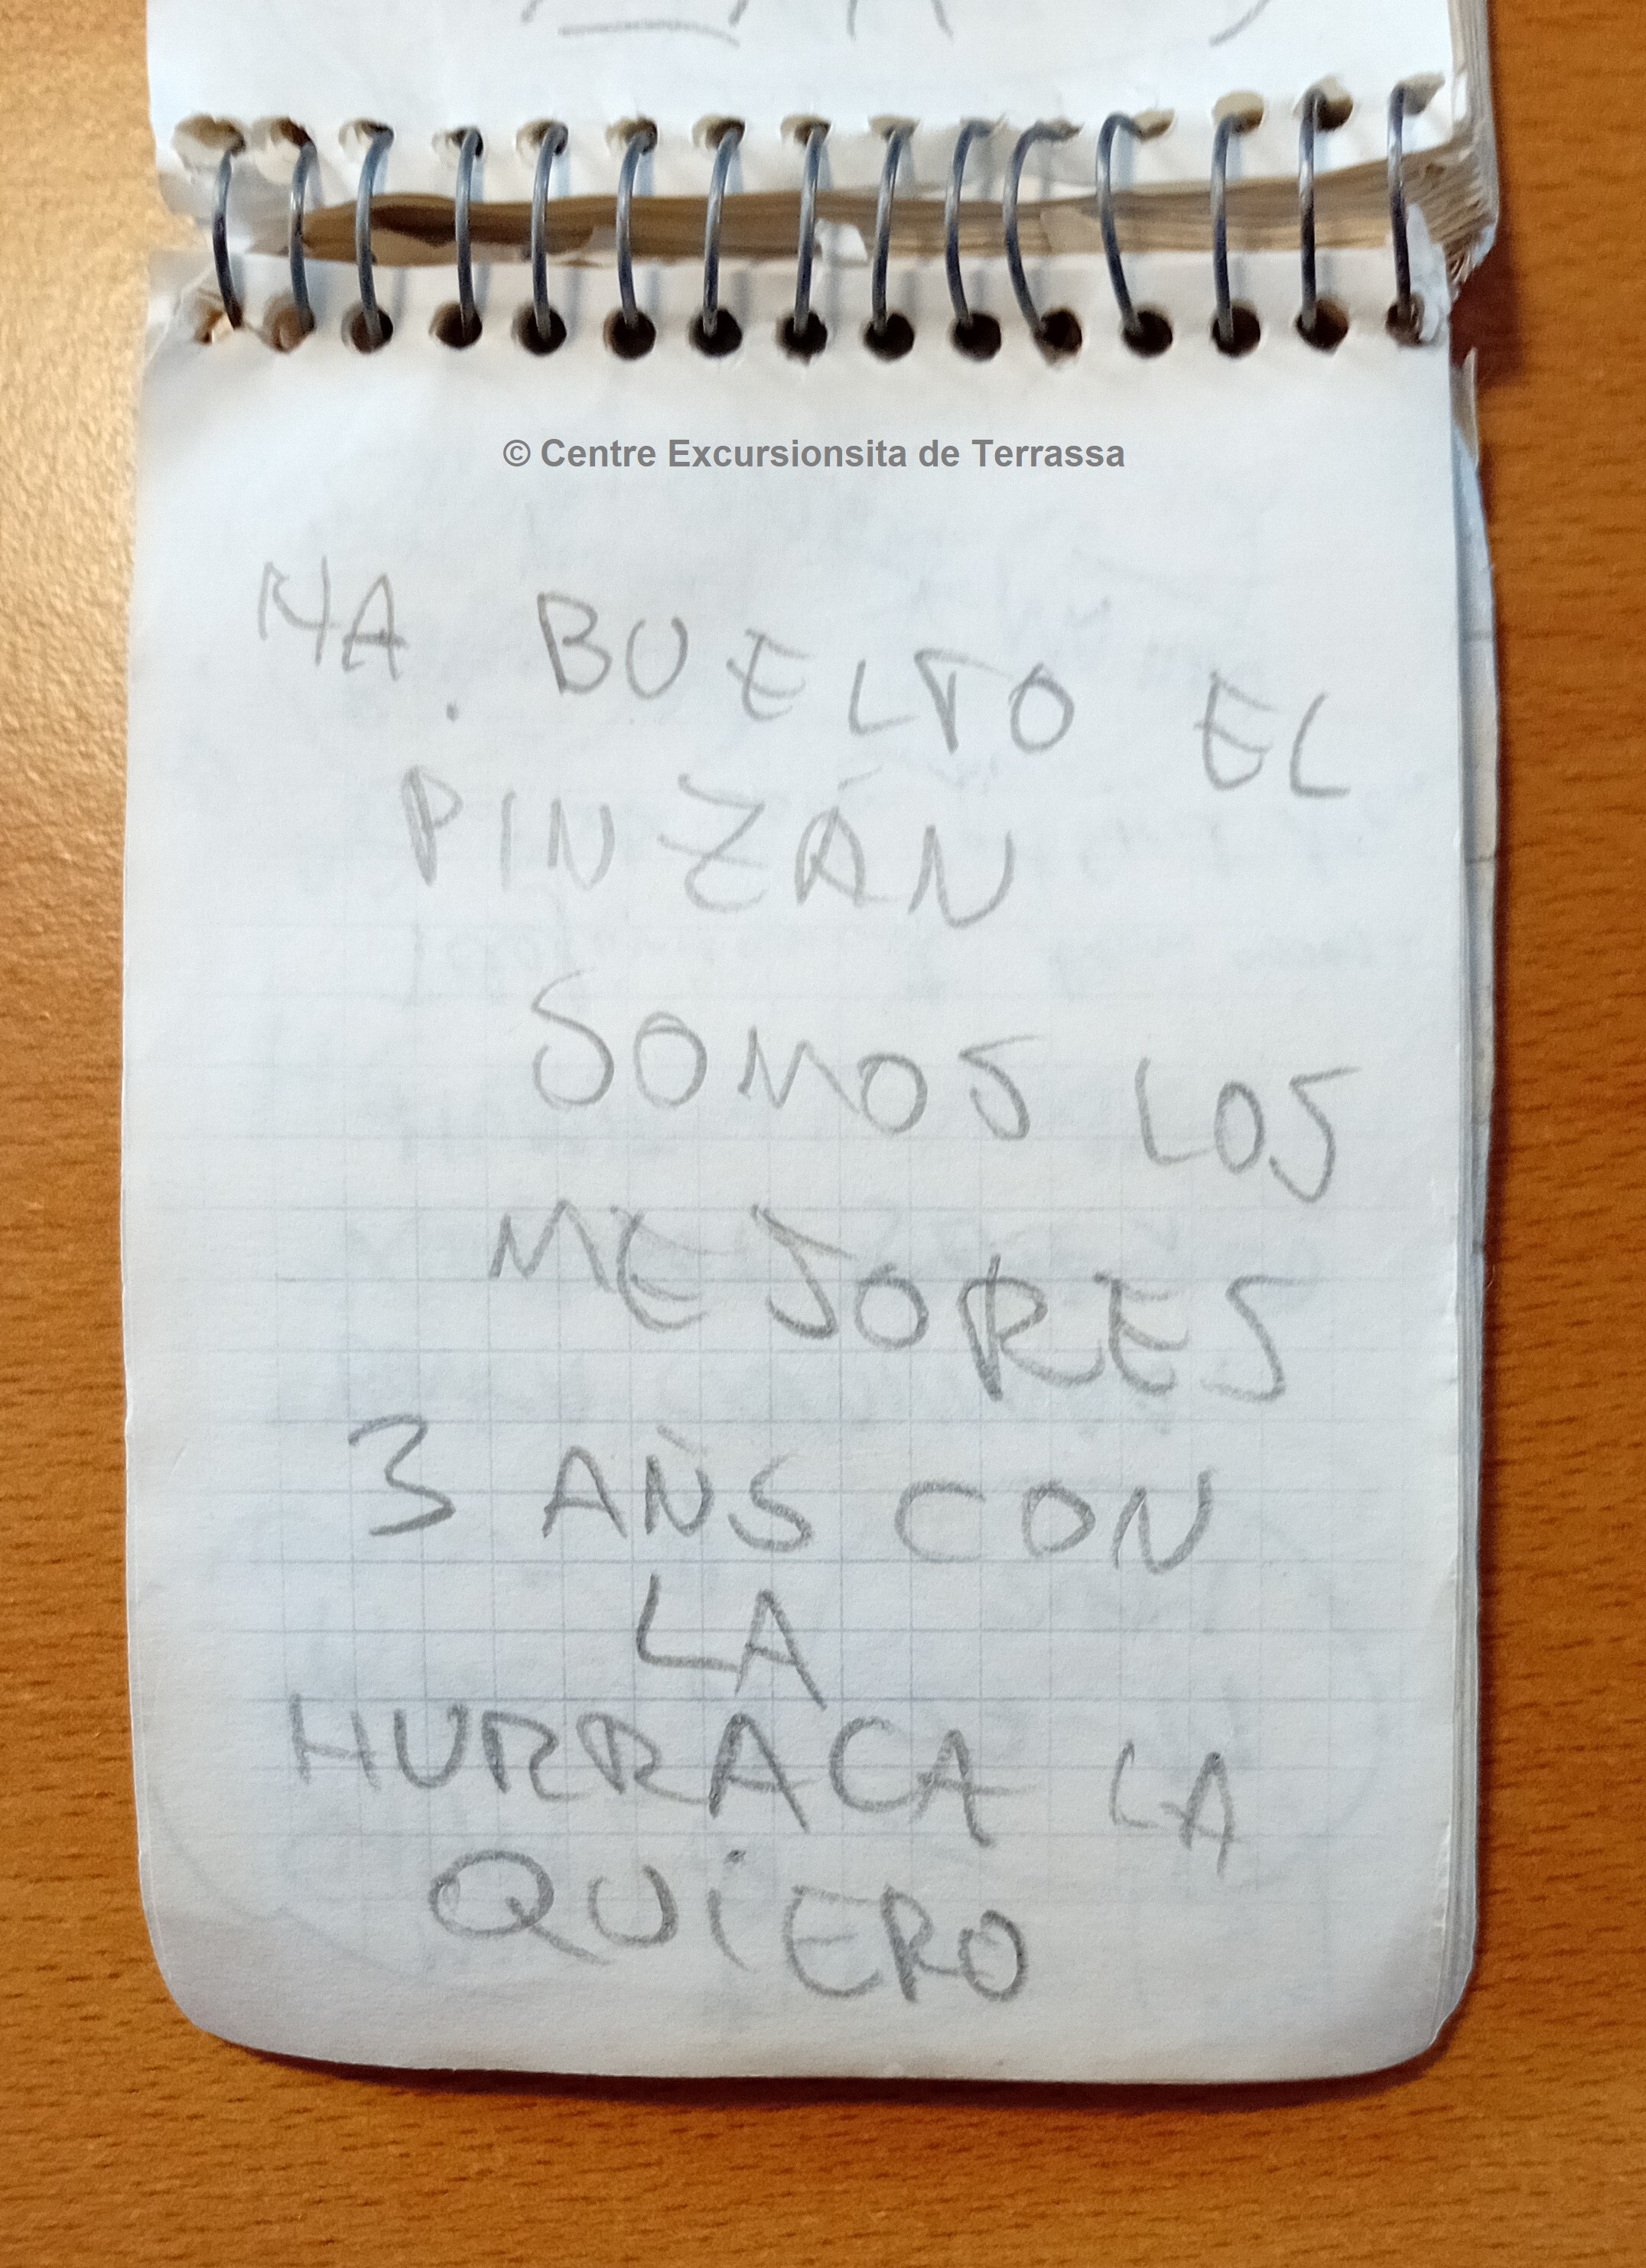 © Centre Excursionsita de Terrassa
HA. BUELTO EL
PINZÁN
SOMOS LOS
MEJORES
3 AÑS CON
LA
HURRACA LA
QUiERO